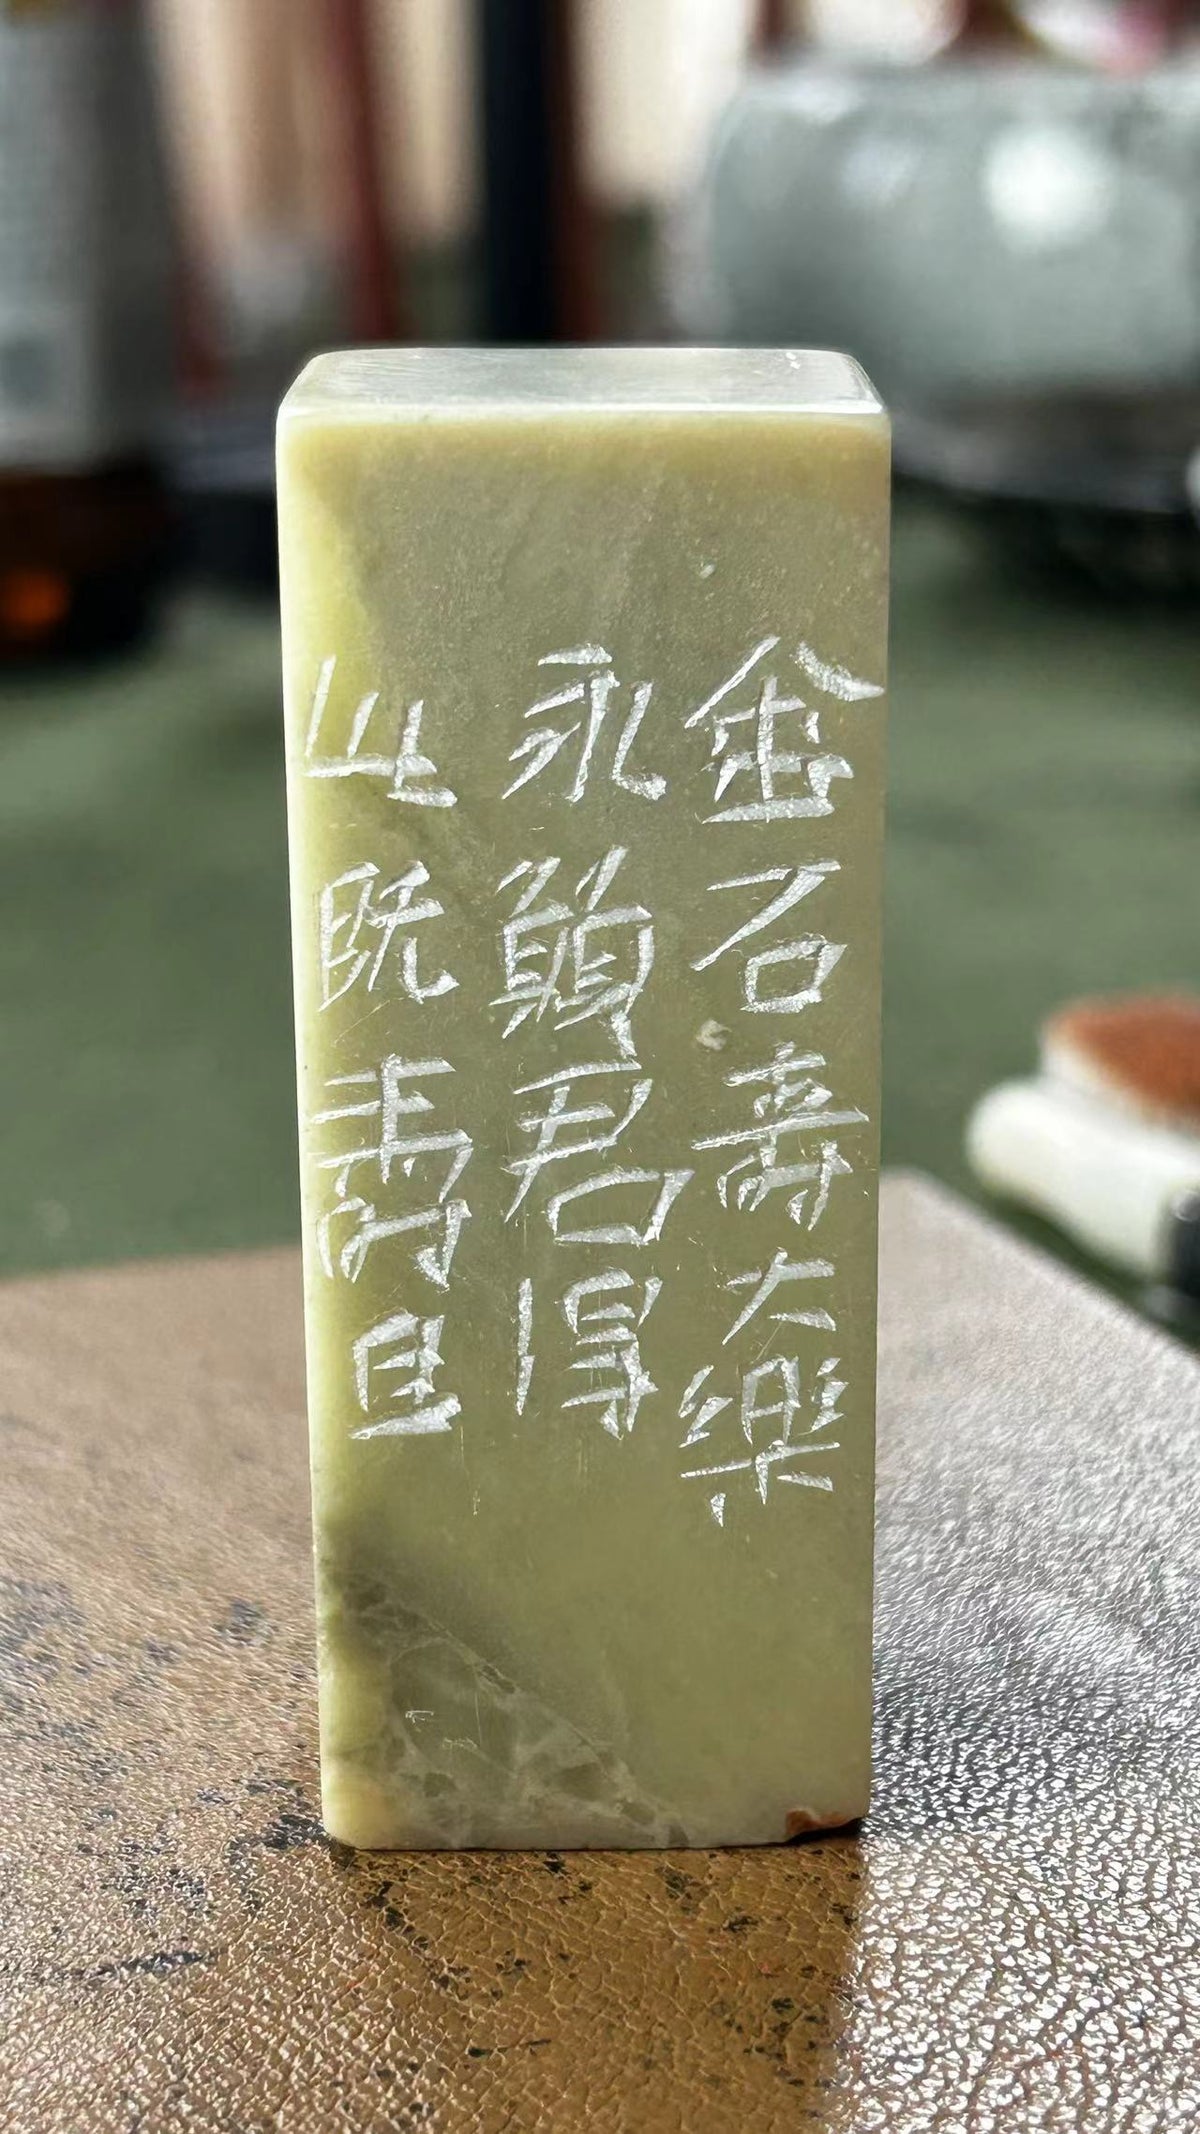 金石壽大樂
永願君得
此既壽且